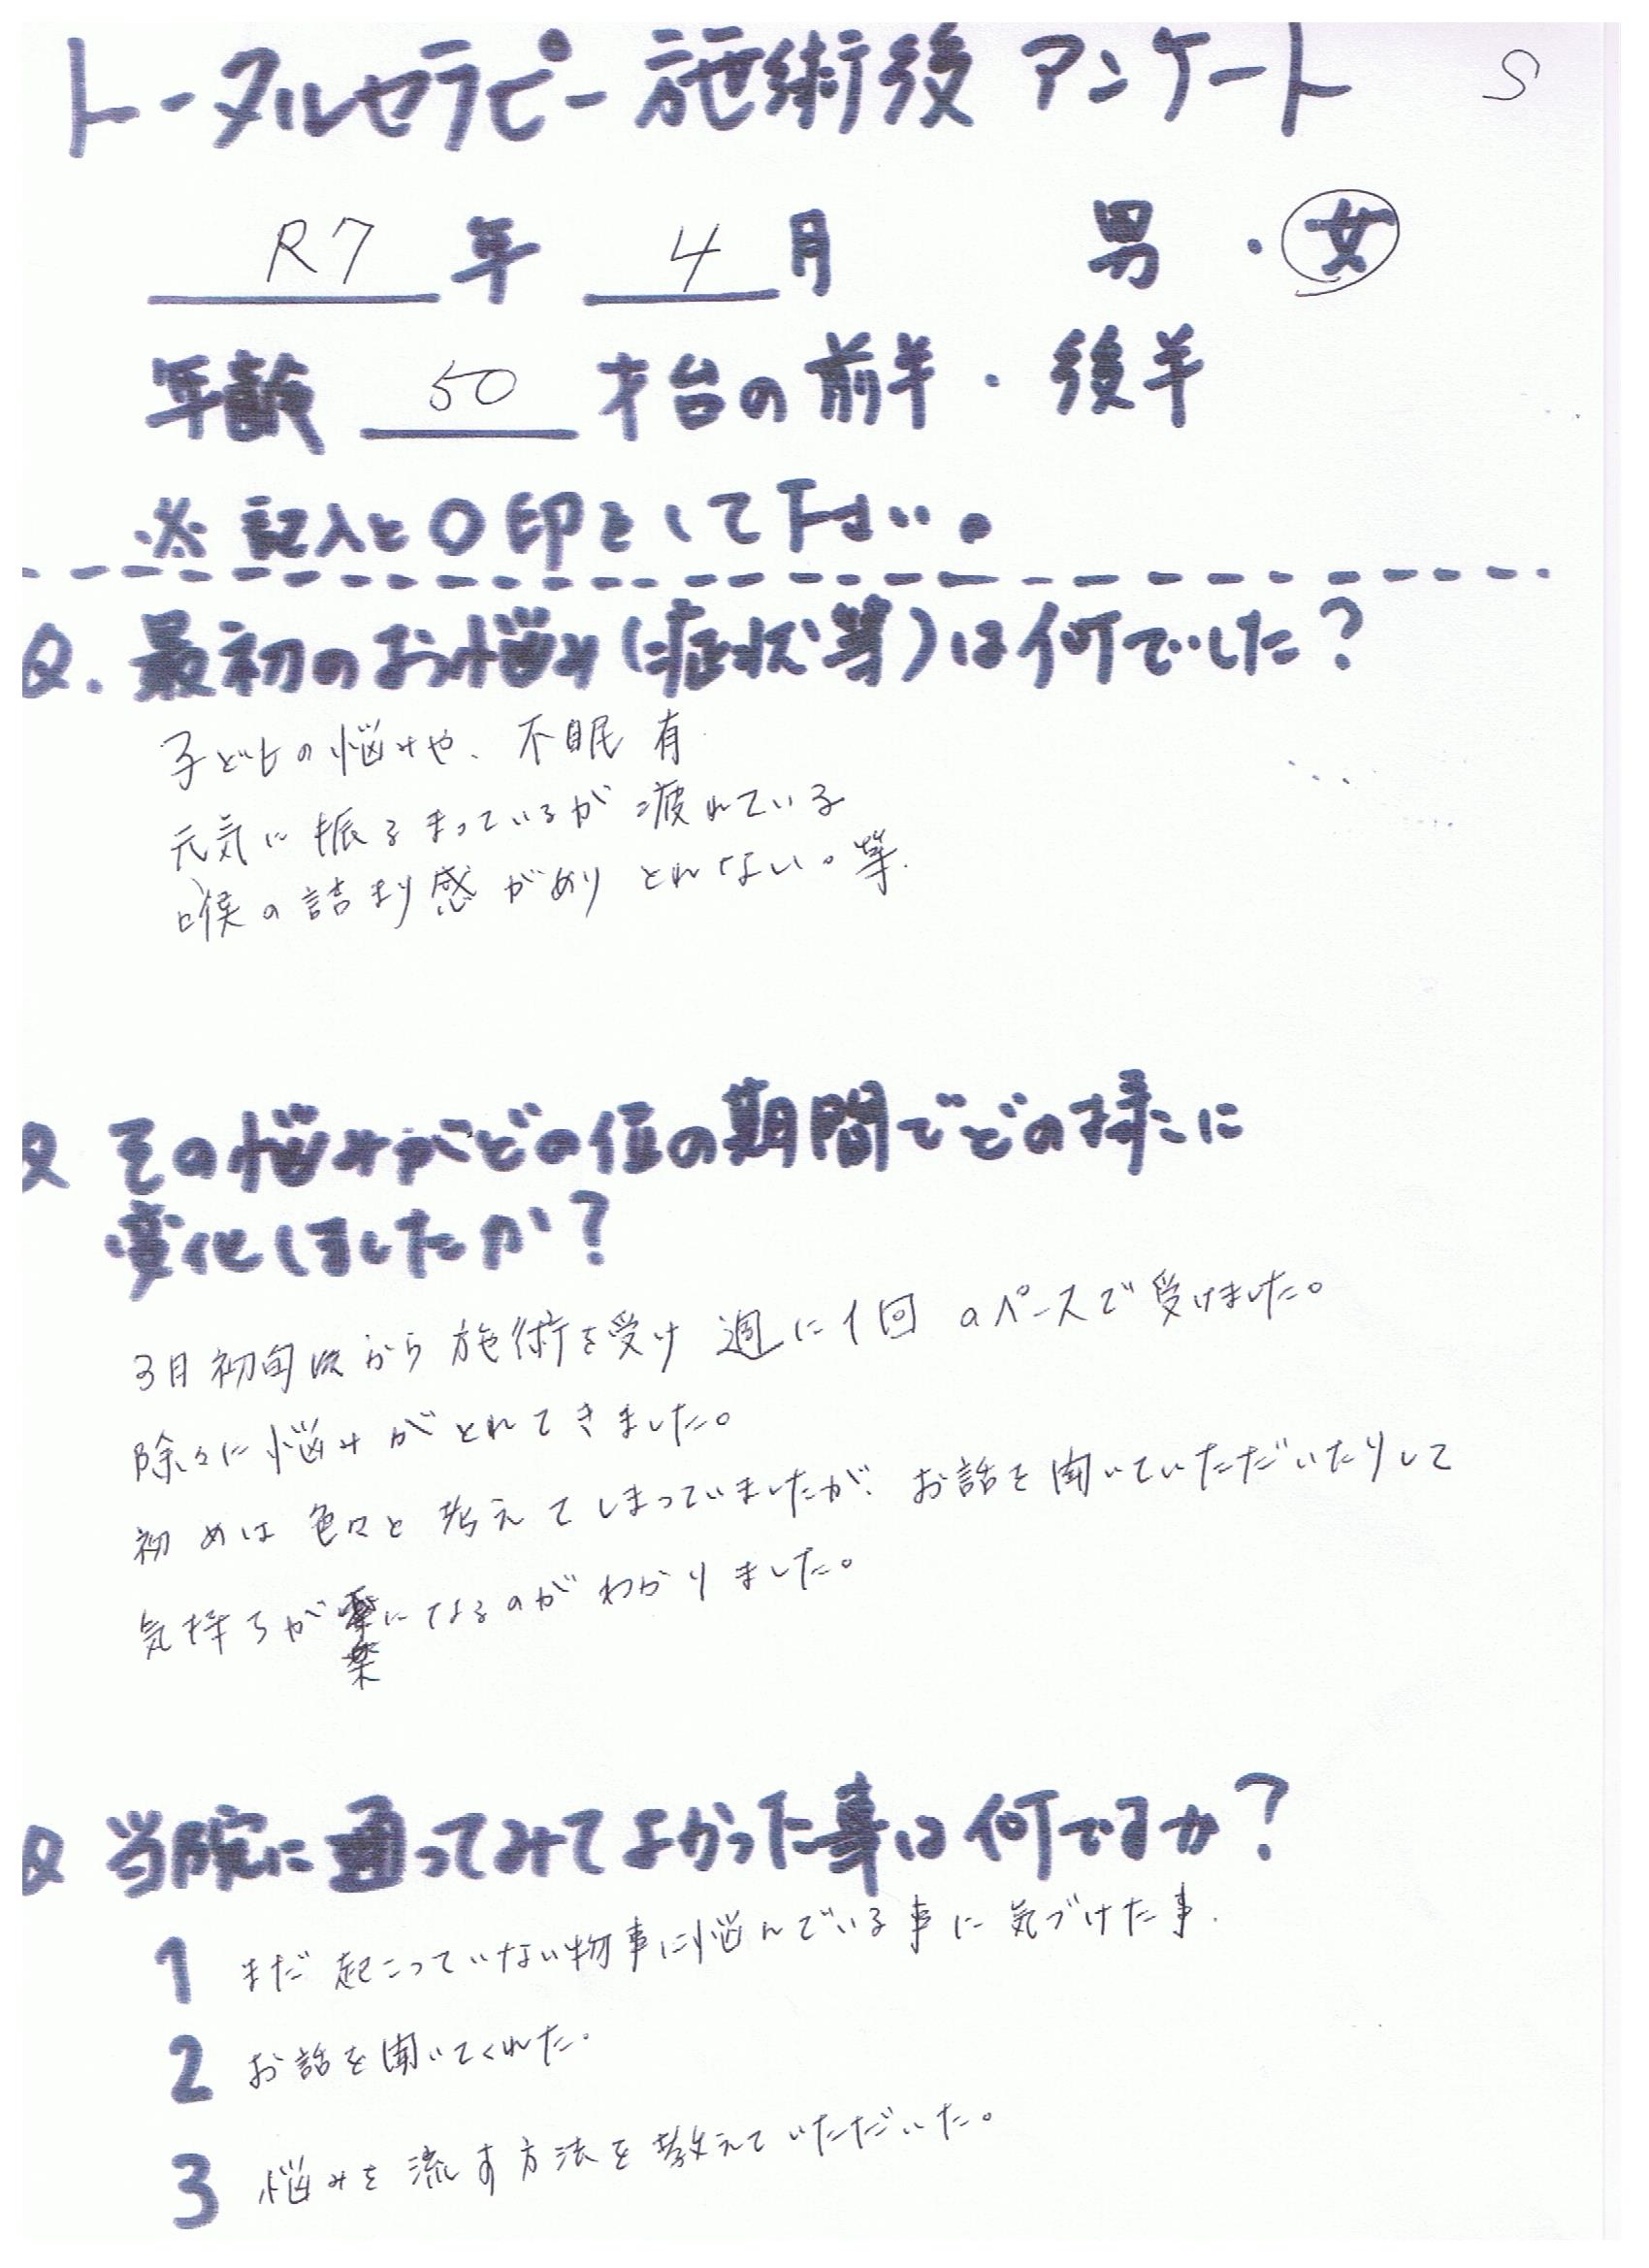 トータルセラピー施術後 アンケート S
R7年 4月 男・女
年齢 50 才台の前半・後半
※記入と〇印をして下さい。
Q.最初のお悩み(症状等)は何でした?
子どもの悩みや、不眠 有
元気に振るまっているが疲れている
喉の詰まり感がありとれない。等.
Q その悩みがどの位の期間でどの様に
変化しましたか?
3月初旬 から 施術を受け 週に1回 のペースで受けました。
除々に悩みがとれてきました。
初めは 色々と 考えてしまっていましたが、お話を聞いていただいたりして
気持ちが楽になるのがわかりました。
Q 当院に通ってみてよかった事は何ですか?
1 まだ起こっていない物事に悩んでいる事に気づけた事.
2 お話を聞いてくれた.
3 悩みを流す方法を教えていただいた。